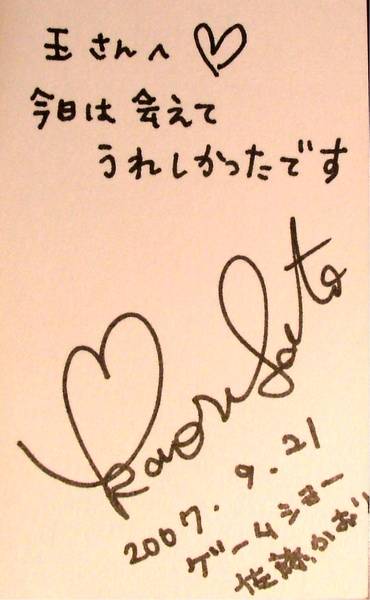 玉さんへ♡
今日は会えて
うれしかったです
Kaori Sato
2007.9.21
ゲームショー
佐藤かおり